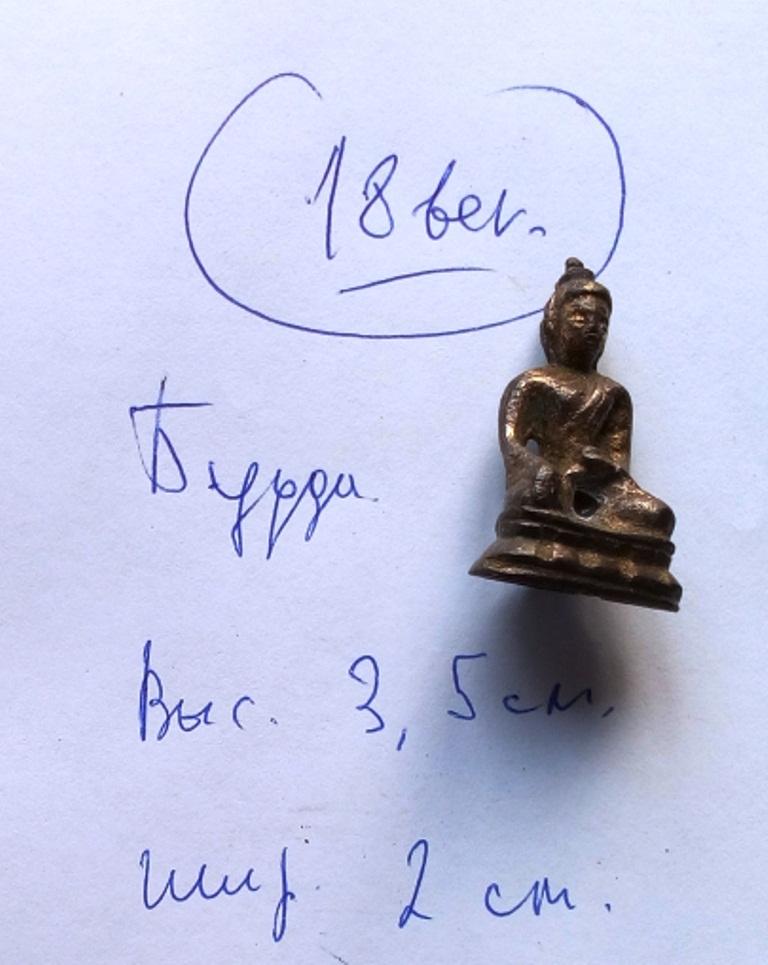 18 век.
Будда
Выс. 3,5 см.
Шир. 2 см.